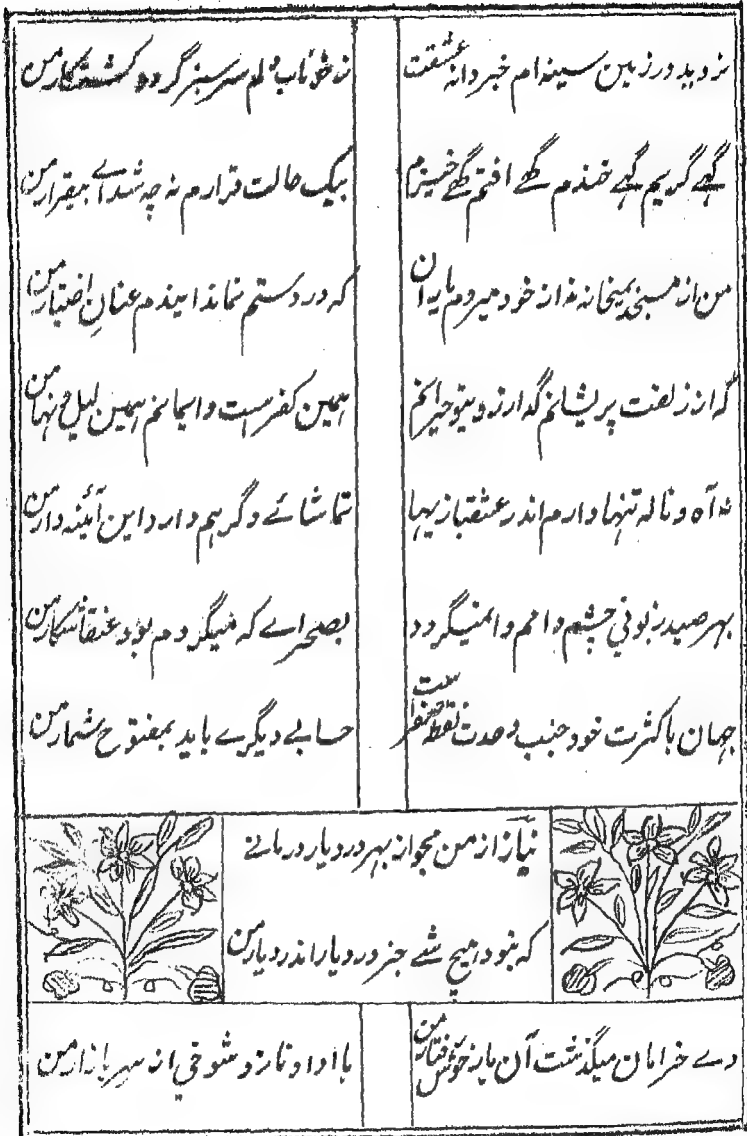 نروید در زمین سینه ام جز دانه عشقت
ز خوناب دلم سرسبز گردد کشتزار من
گہے گریم گہے خندم گہے افتم گہے خیزم
بیک حالت قرارم نہ چہ شد اے بیقرار من
من از مسجد بمیخانہ نہ از خود میروم یاران
کہ در دستم نماند ایندم عنانِ اختیار من
گہ از زلفت پریشانم گہ از رویتو حیرانم
ہمین کفرست و ایمانم ہمین لیل و نہار من
نہ آہ و نالہ تنہا دارم اندر عشقبازیہا
تماشائے دگر ہم دارد این آئینہ دار من
بہر صید زبونی چشم دامم وا نمیگردد
بصحراے کہ میگردم بود عنقا شکار من
جہان با کثرت خود جنب وحدت نقطۂ صفر است
حسابے دیگرے باید بمفتوح شمار من
نیاز از من مجو از بہر درد یار درمانے
کہ نبود ہیچ شے جز درد یار اندر دیار من
دے خرامان میگذشت آن یار خوش رفتار من
با ادا و ناز و شوخی از سر بازار من